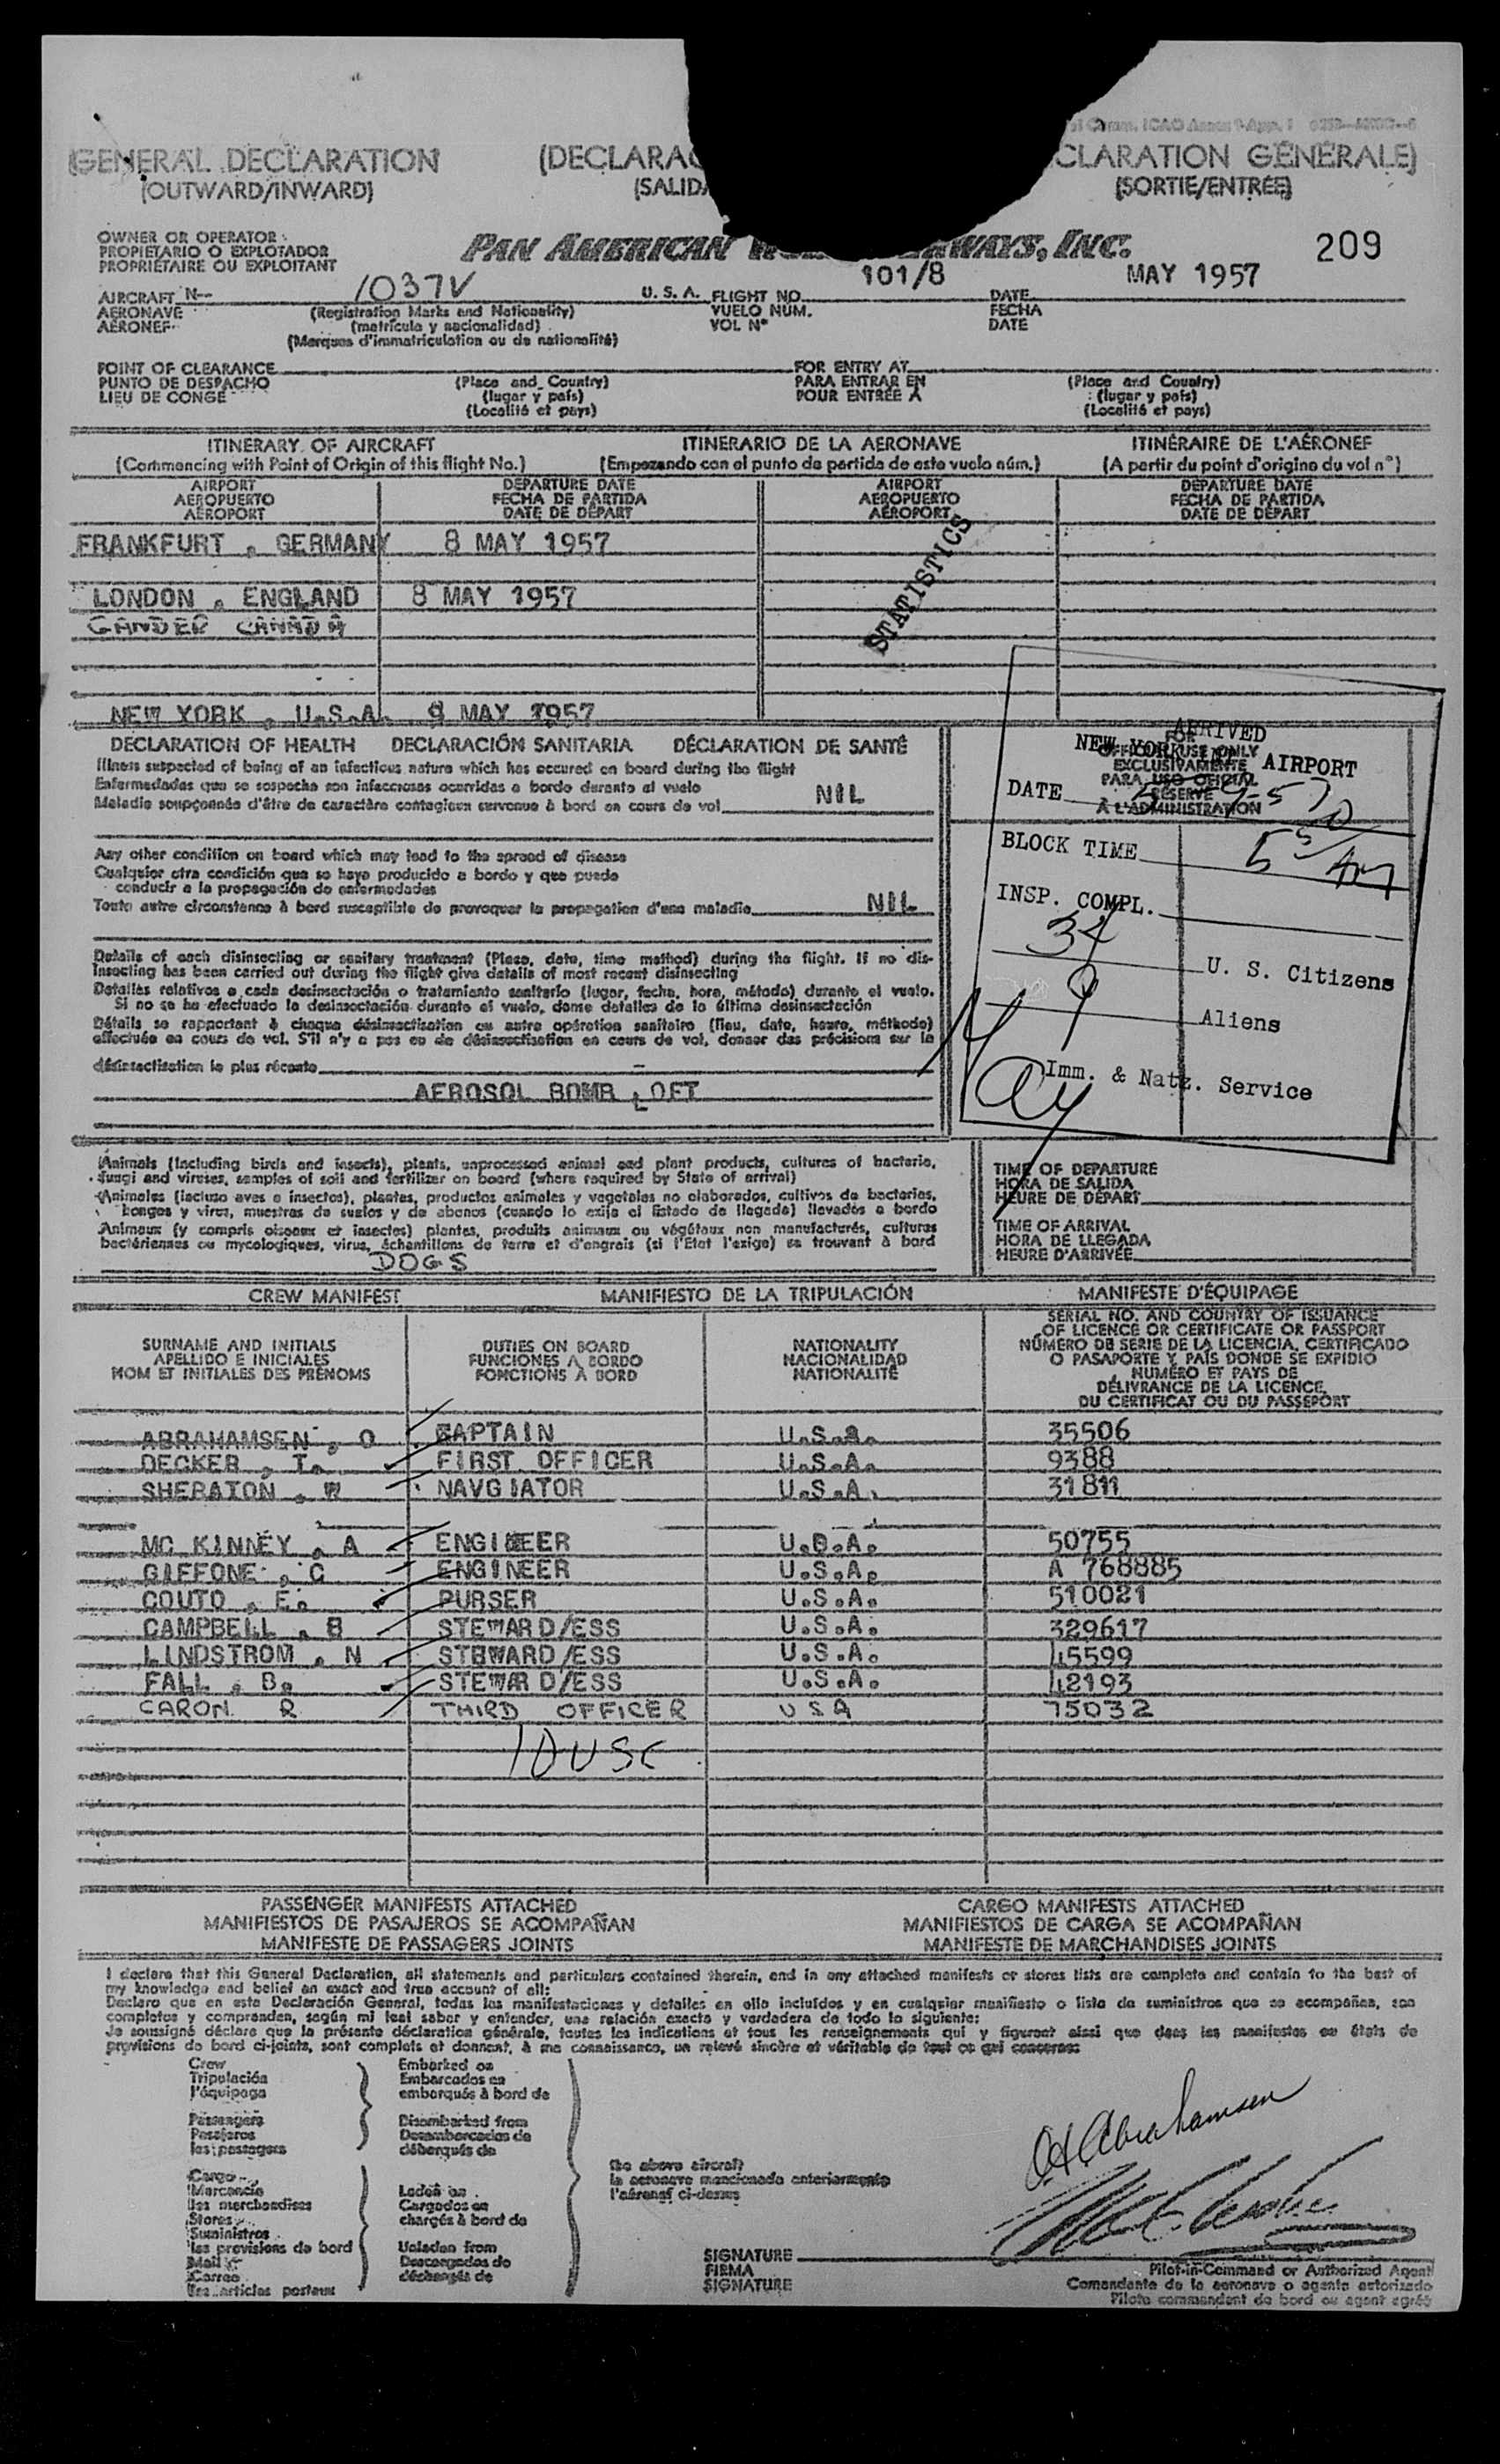 GENERAL DECLARATION (DECLARA CLARATION GÉNÉRALE)
(OUTWARD/INWARD) (SALID (SORTIE/ENTRÉE)
OWNER OR OPERATOR
PROPIETARIO O EXPLOTADOR
PROPRIÉTAIRE OU EXPLOITANT
PAN AMERICAN WAYS, INC. 209
AIRCRAFT N- 1037V U.S.A. FLIGHT NO. 101/8 DATE MAY 1957
AERONAVE (Registration Marks and Nationality) VUELO NUM. FECHA
AÉRONEF (matrícula y nacionalidad) VOL N° DATE
(Marques d'immatriculation ou de nationalité)
POINT OF CLEARANCE FOR ENTRY AT
PUNTO DE DESPACHO (Place and Country) PARA ENTRAR EN (Place and Country)
LIEU DE CONGÉ (lugar y país) POUR ENTRÉE À (lugar y país)
(Localité et pays) (Localité et pays)
ITINERARY OF AIRCRAFT ITINERARIO DE LA AERONAVE ITINÉRAIRE DE L'AÉRONEF
(Commencing with Point of Origin of this flight No.) (Empezando con el punto de partida de este vuelo núm.) (A partir du point d'origine du vol n°)
AIRPORT DEPARTURE DATE AIRPORT DEPARTURE DATE
AEROPUERTO FECHA DE PARTIDA AEROPUERTO FECHA DE PARTIDA
AÉROPORT DATE DE DÉPART AÉROPORT DATE DE DÉPART
FRANKFURT , GERMANY 8 MAY 1957
STATISTICS
LONDON , ENGLAND 8 MAY 1957
GANDER CANADA
NEW YORK , U.S.A. 9 MAY 1957
DECLARATION OF HEALTH DECLARACIÓN SANITARIA DÉCLARATION DE SANTÉ
Illness suspected of being of an infectious nature which has occured on board during the flight
Enfermedades que se sospecha son infecciosas ocurridas a bordo durante el vuelo
Maladie soupçonnée d'être de caractère contagieux survenue à bord en cours de vol NIL
Any other condition on board which may lead to the spread of disease
Cualquier otra condición que se haya producido a bordo y que puede
conducir a la propagación de enfermedades
Toute autre circonstance à bord susceptible de provoquer la propagation d'une maladie NIL
Details of each disinsecting or sanitary treatment (Place, date, time method) during the flight. If no dis-
insecting has been carried out during the flight give details of most recent disinsecting
Detalles relativos a cada desinsectación o tratamiento sanitario (lugar, fecha, hora, método) durante el vuelo.
Si no se ha efectuado la desinsectación durante el vuelo, dense detalles de la última desinsectación
Détails se rapportant à chaque désinsectisation ou autre opération sanitaire (lieu, date, heure, méthode)
effectuée en cours de vol. S'il n'y a pas eu de désinsectisation en cours de vol, donner des précisions sur la
désinsectisation la plus récente
AEROSOL BOMB , OFT
ARRIVED
NEW YORK AIRPORT
FOR
OFFICIAL USE ONLY
EXCLUSIVAMENTE
PARA USO OFICIAL
RÉSERVÉ
À L'ADMINISTRATION
DATE
BLOCK TIME
INSP. COMPL.
34 U. S. Citizens
9 Aliens
Imm. & Natz. Service
Animals (including birds and insects), plants, unprocessed animal and plant products, cultures of bacteria,
fungi and viruses, samples of soil and fertilizer on board (where required by State of arrival)
Animales (incluso aves e insectos), plantas, productos animales y vegetales no elaborados, cultivos de bacterias,
hongos y virus, muestras de suelos y de abonos (cuando lo exija el Estado de llegada) llevados a bordo
Animaux (y compris oiseaux et insectes) plantes, produits animaux ou végétaux non manufacturés, cultures
bactériennes ou mycologiques, virus, échantillons de terre et d'engrais (si l'Etat l'exige) se trouvant à bord
DOGS
TIME OF DEPARTURE
HORA DE SALIDA
HEURE DE DÉPART
TIME OF ARRIVAL
HORA DE LLEGADA
HEURE D'ARRIVÉE
CREW MANIFEST MANIFIESTO DE LA TRIPULACIÓN MANIFESTE D'ÉQUIPAGE
SURNAME AND INITIALS DUTIES ON BOARD NATIONALITY
APELLIDO E INICIALES FUNCIONES A BORDO NACIONALIDAD
NOM ET INITIALES DES PRÉNOMS FONCTIONS À BORD NATIONALITÉ
SERIAL NO. AND COUNTRY OF ISSUANCE
OF LICENCE OR CERTIFICATE OR PASSPORT
NÚMERO DE SERIE DE LA LICENCIA, CERTIFICADO
O PASAPORTE Y PAÍS DONDE SE EXPIDIÓ
NUMÉRO ET PAYS DE
DÉLIVRANCE DE LA LICENCE,
DU CERTIFICAT OU DU PASSEPORT
ABRAHAMSEN , O CAPTAIN U.S.A. 35506
DECKER , T. FIRST OFFICER U.S.A. 9388
SHERATON , W NAVGIATOR U.S.A. 31811
MC KINNEY , A ENGINEER U.S.A. 50755
GIFFONE , C ENGINEER U.S.A. A 768885
COUTO , E. PURSER U.S.A. 510021
CAMPBELL , B STEWARD/ESS U.S.A. 329617
LINDSTROM , N STEWARD/ESS U.S.A. 45599
FALL , B. STEWARD/ESS U.S.A. 42193
CARON R THIRD OFFICER USA 75032
10 USC
PASSENGER MANIFESTS ATTACHED CARGO MANIFESTS ATTACHED
MANIFIESTOS DE PASAJEROS SE ACOMPAÑAN MANIFIESTOS DE CARGA SE ACOMPAÑAN
MANIFESTE DE PASSAGERS JOINTS MANIFESTE DE MARCHANDISES JOINTS
I declare that this General Declaration, all statements and particulars contained therein, and in any attached manifests or stores lists are complete and contain to the best of
my knowledge and belief an exact and true account of all:
Declaro que en esta Declaración General, todas las manifestaciones y detalles en ella incluídos y en cualquier manifiesto o lista de suministros que se acompañen, son
completos y comprenden, según mi leal saber y entender, una relación exacta y verdadera de todo lo siguiente:
Je soussigné déclare que la présente déclaration générale, toutes les indications et tous les renseignements qui y figurent ainsi que dans les manifestes ou états de
provisions de bord ci-joints, sont complets et donnent, à ma connaissance, un relevé sincère et véritable de tout ce qui concerne:
Crew Embarked on
Tripulación Embarcados en
l'équipage embarqués à bord de
Passengers Disembarked from
Pasajeros Desembarcados de
les passagers débarqués de
the above aircraft
la aeronave mencionada anteriormente
l'aéronef ci-dessus
Cargo
Mercancía Laden on
les merchandises Cargados en
Stores chargés à bord de
Suministros
les provisions de bord Unladen from
Mail Descargados de
Correo déchargés de
les articles postaux
O A Abrahamsen
SIGNATURE
FIRMA
SIGNATURE
Pilot-in-Command or Authorized Agent
Comandante de la aeronave o agente autorizado
Pilote commandant de bord ou agent agréé